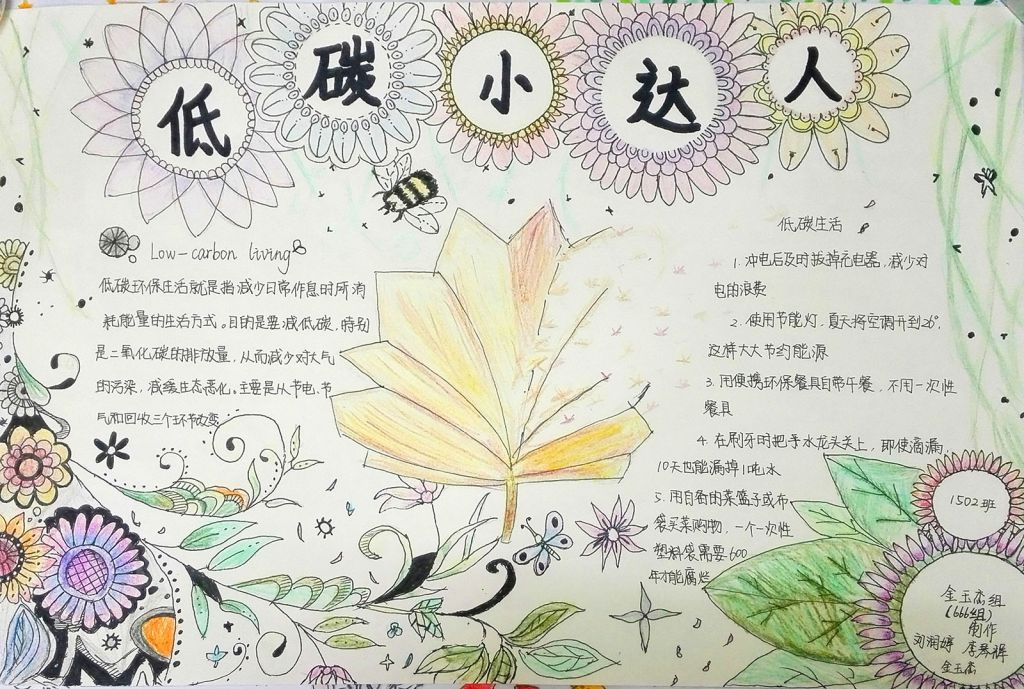 低碳小达人
Low-carbon living
低碳环保生活就是指减少日常作息时所消
耗能量的生活方式。目的是要减低碳，特别
是二氧化碳的排放量，从而减少对大气
的污染，减缓生态恶化。主要是从节电、节
气和回收三个环节改变
低碳生活
1. 冲电后及时拔掉充电器，减少对
电的浪费
2. 使用节能灯，夏天将空调开到26°，
这样大大节约能源
3. 用便携环保餐具自带午餐，不用一次性
餐具
4. 在刷牙时把手水龙头关上，即使滴漏，
10天也能漏掉1吨水
5. 用自备的菜篮子或布
袋买菜购物，一个一次性
塑料袋需要600
年才能腐烂
1502班
金玉 组
(666组)
制作
刘润婷 李
金玉